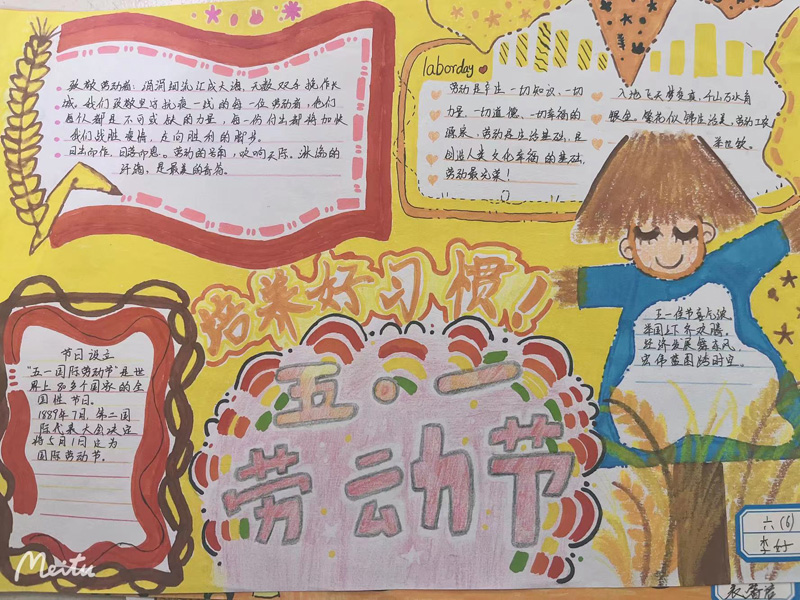 致敬劳动者:涓涓细流汇成大海,无数双手挽作长
城。我们致敬坚守抗疫一线的每一位劳动者,他们
每个都是不可或缺的力量,每一份付出都将加快
我们战胜疫情、走向胜利的脚步。
日出而作,日落而息。劳动的号角,吹响天际。淋漓的
汗滴,是最美的音符。
laborday
劳动是幸庄一切知识、一切
力量、一切道德、一切幸福的
源泉,劳动是生活基础,是
创造人类文化幸福的基础,
劳动最光荣!
入地飞天梦变真,千山万水有
银金。
培养好习惯!
五·一
劳动节
节日设立
"五一国际劳动节"是世
界上80多个国家的全
国性节日。
1889年7月,第二国
际代表大会决定
将5月1日定为
国际劳动节。
五一佳节
举国上下齐欢腾。
经济发展
宏伟蓝图跨时空。
六(6)
李
Meitu